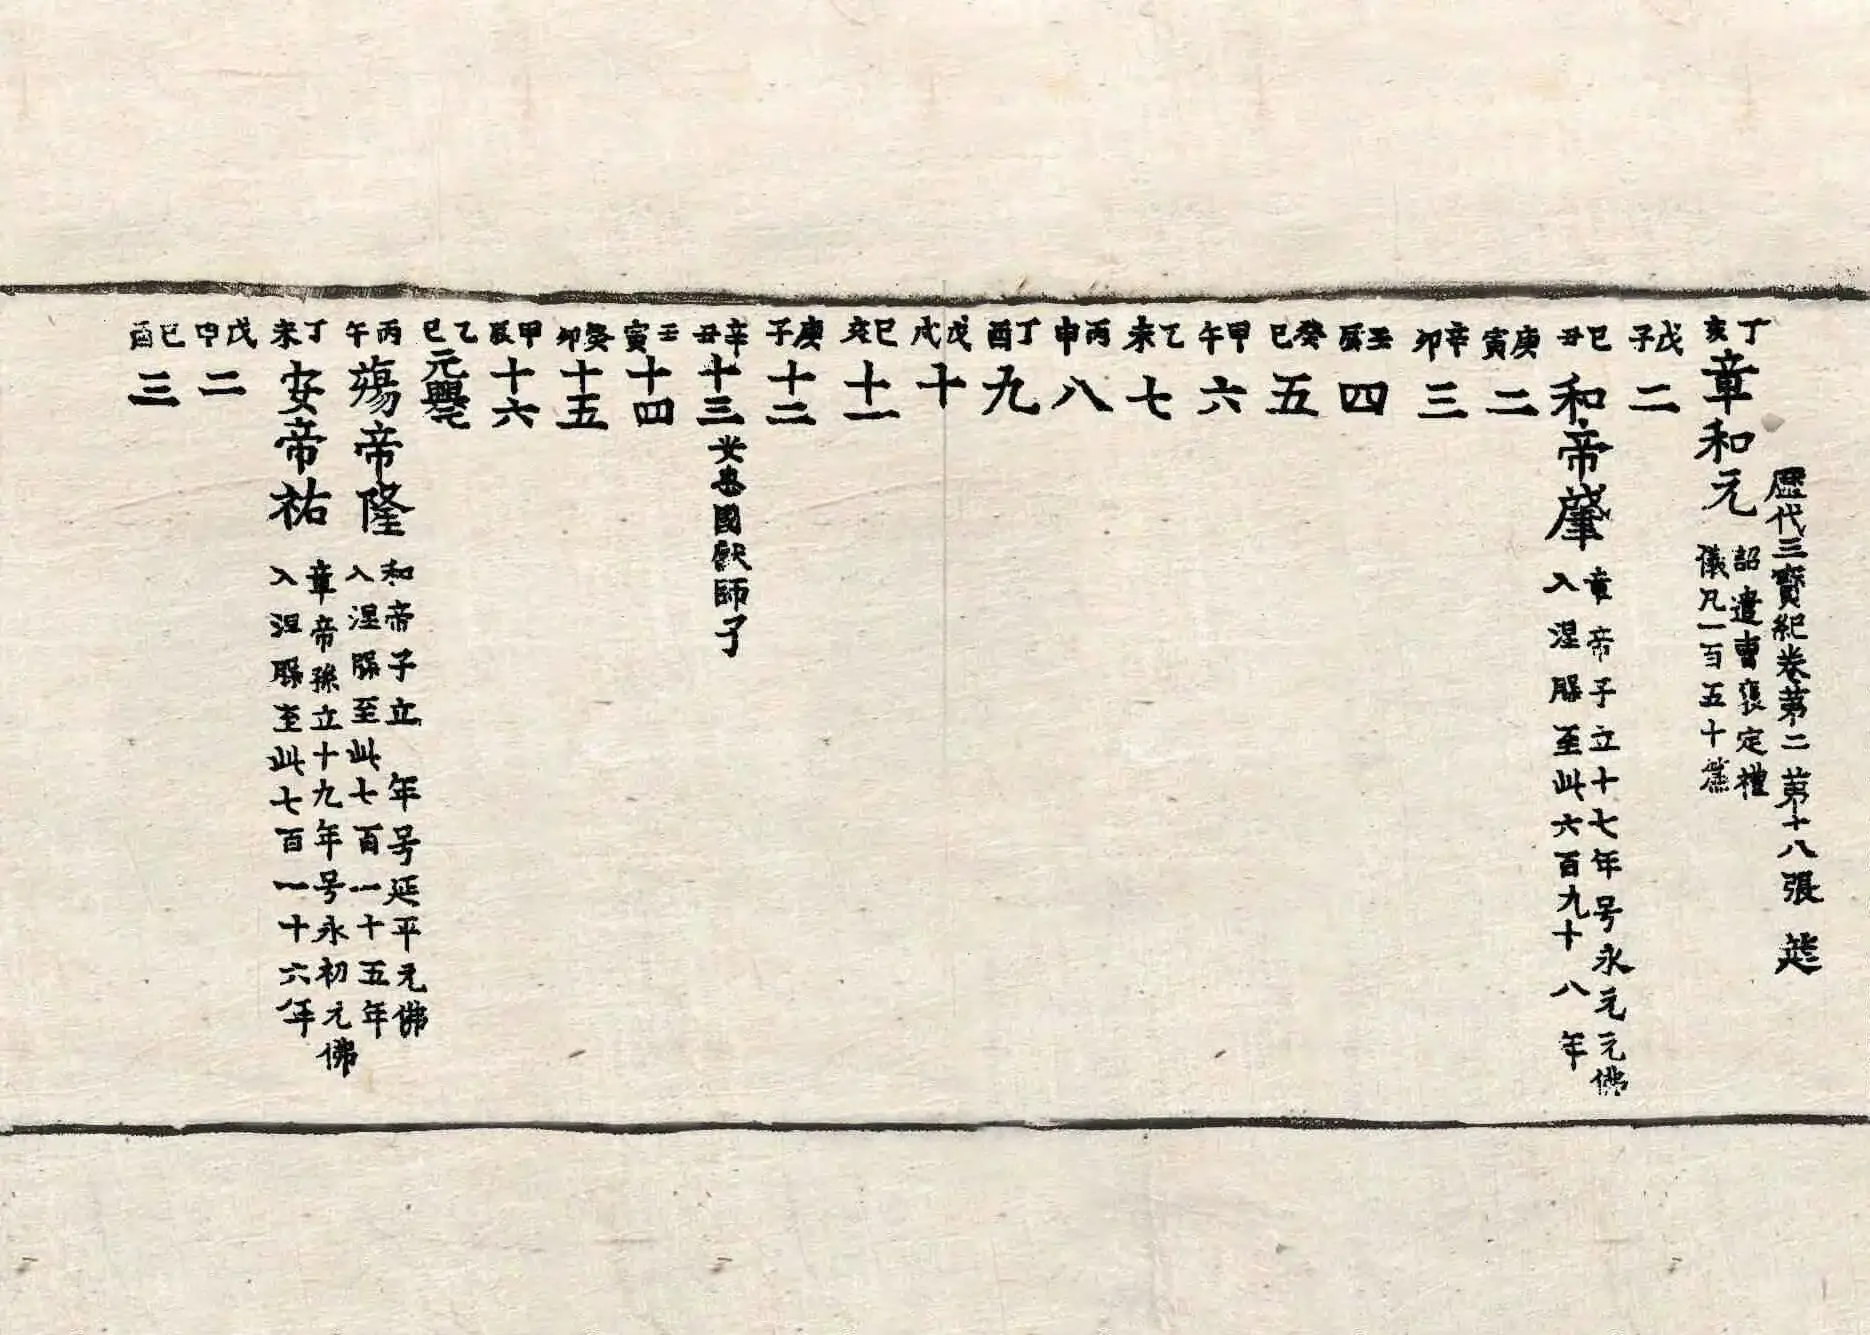 歷代三寶紀卷苐二 苐十八張 筵
丁亥 章和元 詔遣曹褒定禮
儀凡一百五十篇
戊子 二
己丑 和帝肇 章帝子立十七年号永元元佛
入涅槃至此六百九十八年
庚寅 二
辛卯 三
壬辰 四
癸巳 五
甲午 六
乙未 七
丙申 八
丁酉 九
戊戌 十
己亥 十一
庚子 十二
辛丑 十三 安息國獻師子
壬寅 十四
癸卯 十五
甲辰 十六
乙巳 元興元
丙午 殤帝隆 和帝子立 年号延平元佛
入涅槃至此七百一十五年
丁未 安帝祐 章帝孫立十九年号永初元佛
入涅槃至此七百一十六年
戊申 二
己酉 三